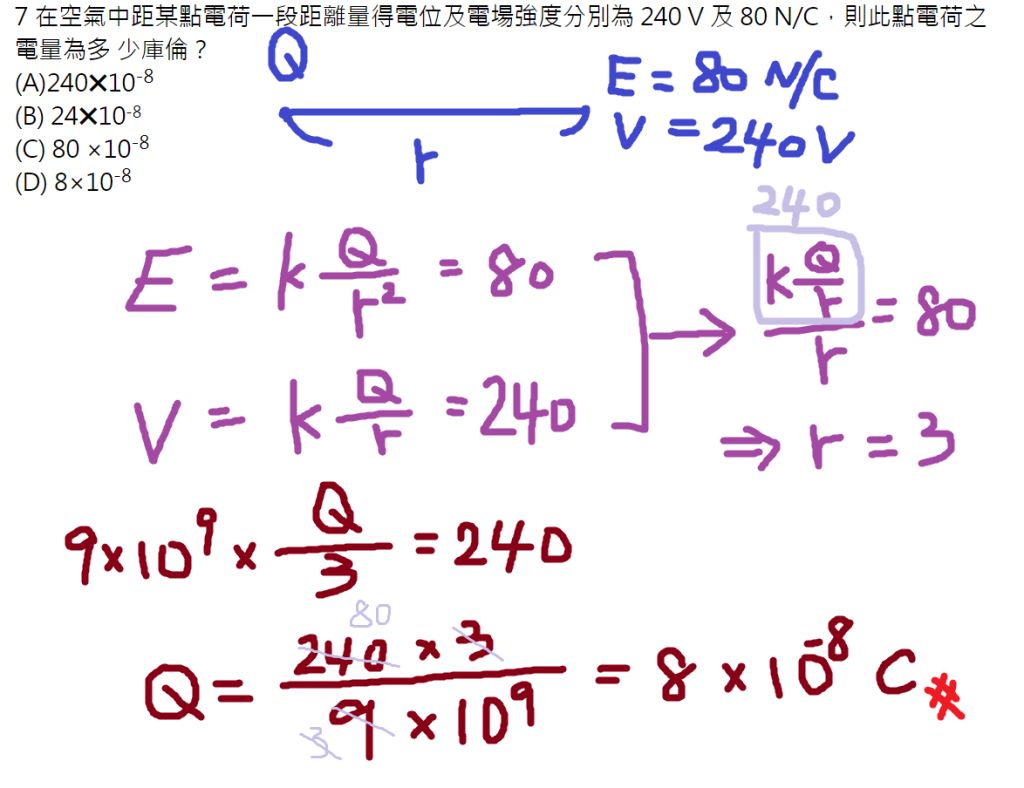 7 在空氣中距某點電荷一段距離量得電位及電場強度分別為 240 V 及 80 N/C，則此點電荷之
電量為多 少庫倫？
(A)240✕10⁻⁸
(B) 24✕10⁻⁸
(C) 80 ×10⁻⁸
(D) 8×10⁻⁸
Q
r
E = 80 N/C
V = 240 V
E = k Q/r² = 80
V = k Q/r = 240
240
(k Q/r)/r = 80
⇒ r = 3
9×10⁹ × Q/3 = 240
80
Q = (240 × 3)/(9 × 10⁹) = 8 × 10⁻⁸ C
3